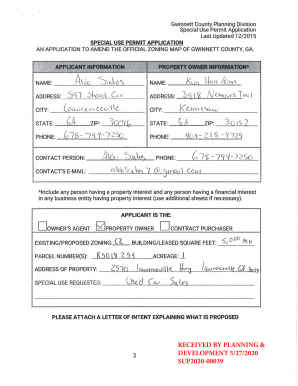 Gwinnett County Planning Division
Special Use Permit Application
Last Updated 12/2015
SPECIAL USE PERMIT APPLICATION
AN APPLICATION TO AMEND THE OFFICIAL ZONING MAP OF GWINNETT COUNTY, GA.
APPLICANT INFORMATION PROPERTY OWNER INFORMATION*
NAME: Aldo Sixtos NAME: Kun Han Kim
ADDRESS: 597 Shoal Cir ADDRESS: 3918 Nemours Trail
CITY: Lawrenceville CITY: Kennesaw
STATE: GA ZIP: 30046 STATE: GA ZIP: 30152
PHONE: 678-794-7250 PHONE: 404-218-4729
CONTACT PERSON: Aldo Sixtos PHONE: 678-794-7250
CONTACT'S E-MAIL: @gmail.com
*Include any person having a property interest and any person having a financial interest
in any business entity having property interest (use additional sheets if necessary).
APPLICANT IS THE:
OWNER'S AGENT PROPERTY OWNER CONTRACT PURCHASER
EXISTING/PROPOSED ZONING: C2 BUILDING/LEASED SQUARE FEET: 5,000
PARCEL NUMBER(S): R5018 254 ACREAGE: 1
ADDRESS OF PROPERTY: 2570 Lawrenceville Hwy Lawrenceville GA
SPECIAL USE REQUESTED: Used Car Sales
PLEASE ATTACH A LETTER OF INTENT EXPLAINING WHAT IS PROPOSED
RECEIVED BY PLANNING &
2 DEVELOPMENT 5/27/2020
SUP2020-00039